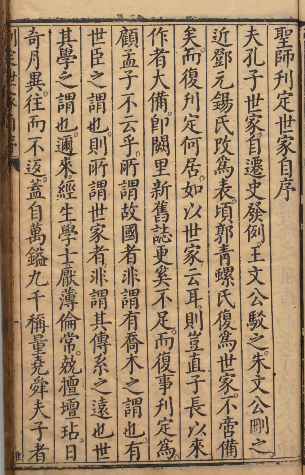 聖師刊定世家自序
夫孔子世家。自遷史發例。王文公駁之。朱文公刪之。
近鄧元錫氏改為表。頃郭青螺氏復為世家。不啻備
矣。而復刊定何居。如以世家云耳。則豈直子長以來
作者大備。卽闕里新舊誌更奚不足。而復事刊定為。
顧孟子不云乎。所謂故國者。非謂有喬木之謂也。有
世臣之謂也。則所謂世家者。非謂其傳系之遠也。世
其學之謂也。邇來經生學士。厭薄倫常。兢檀壇玷。日
奇月異。往而不返。蓋自萬鎰九千。稱量堯舜夫子者